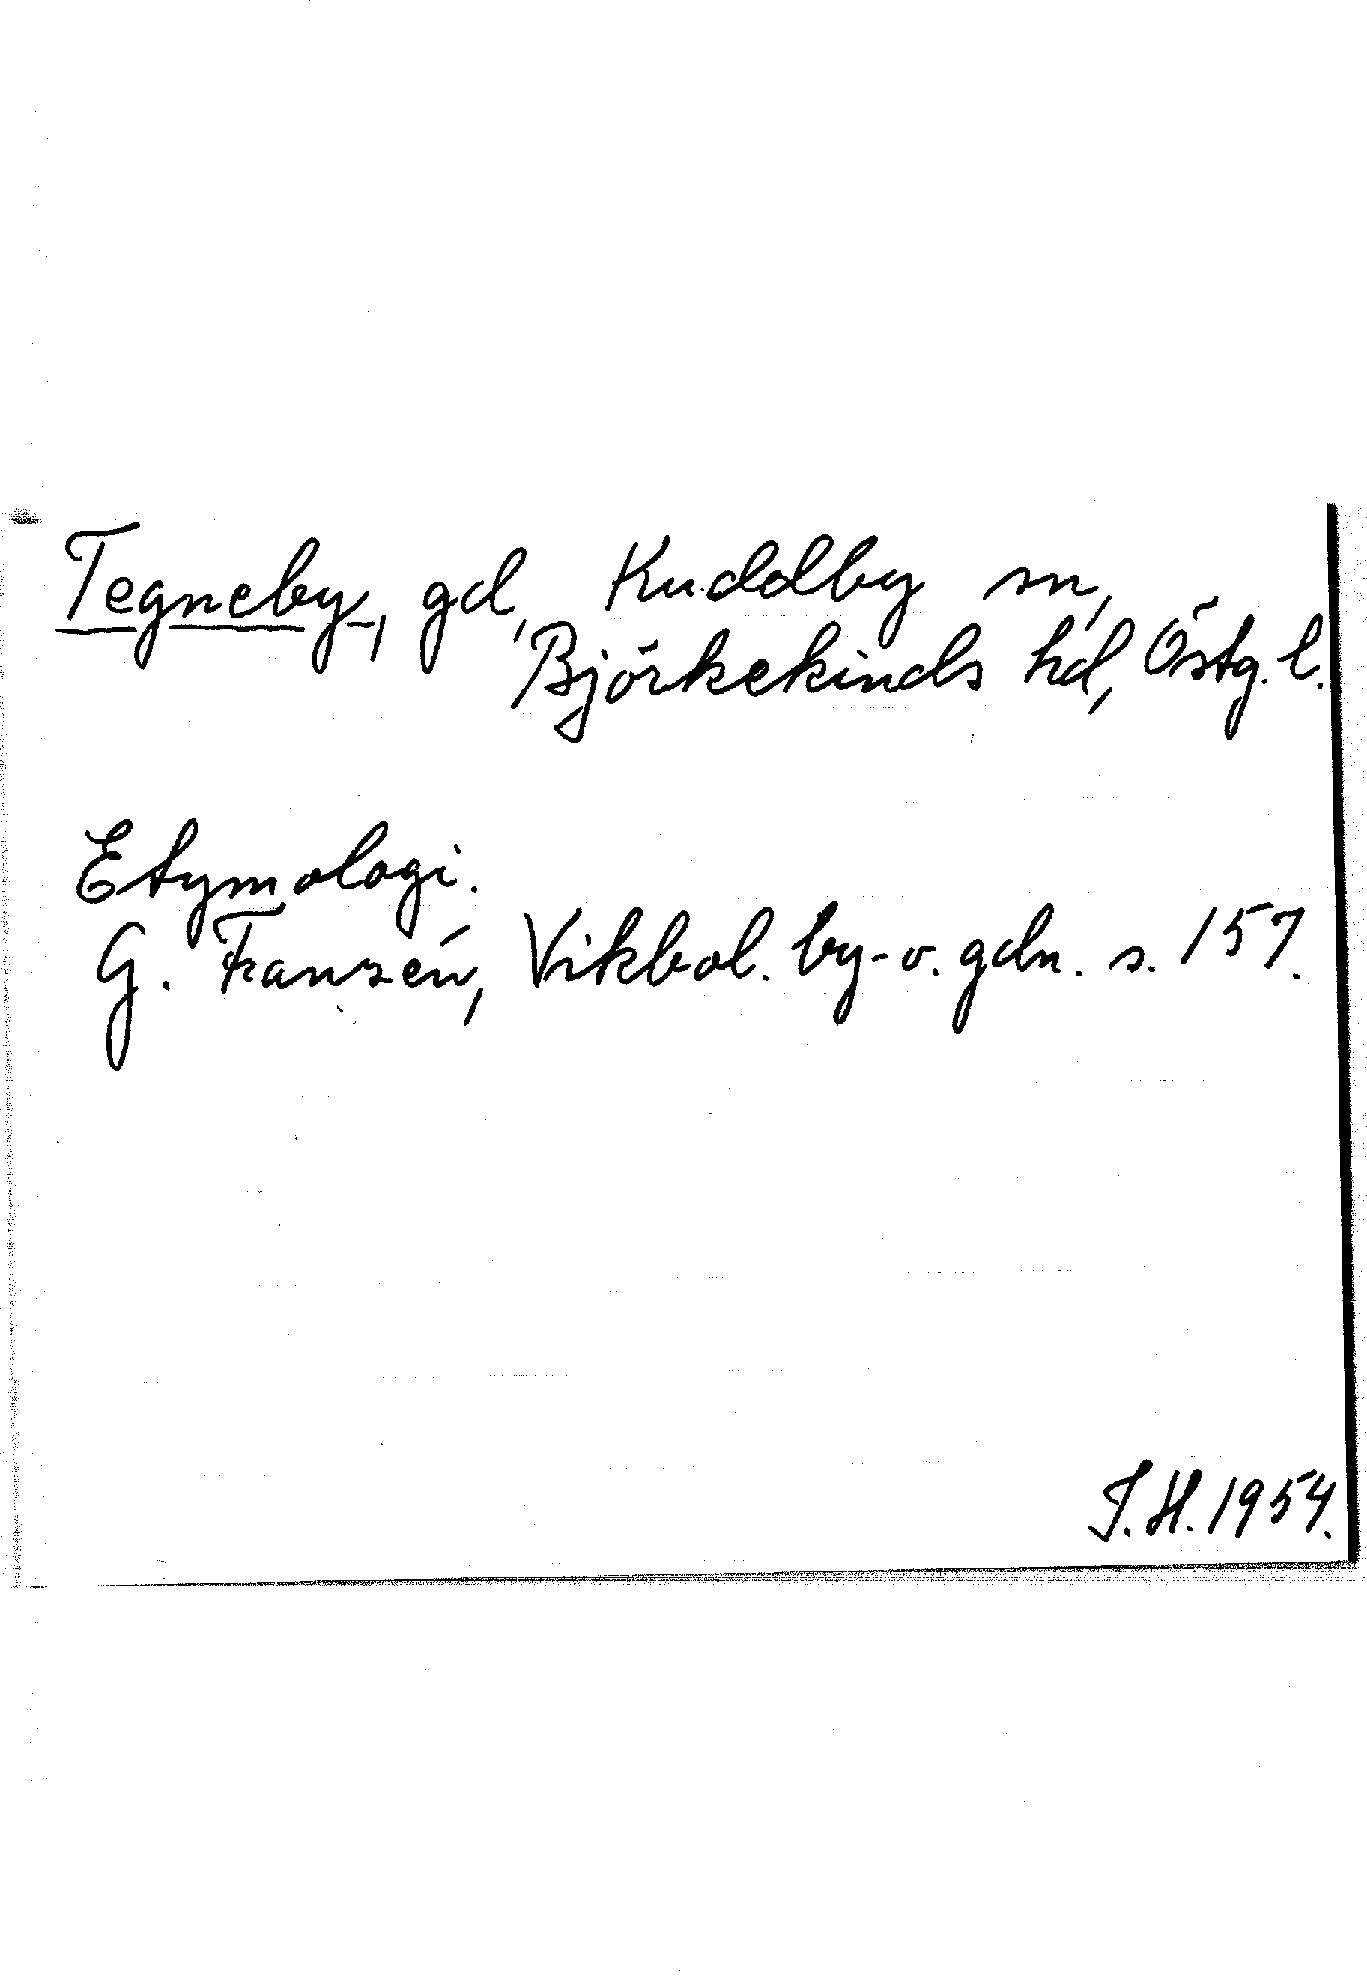 Tegneby, gd, Kuddby sn,
Björkekinds hd, Östg. l.
Etymologi.
G. Franzén, Vikbol. by- o. gdn. s. 157.
J.H. 1954.